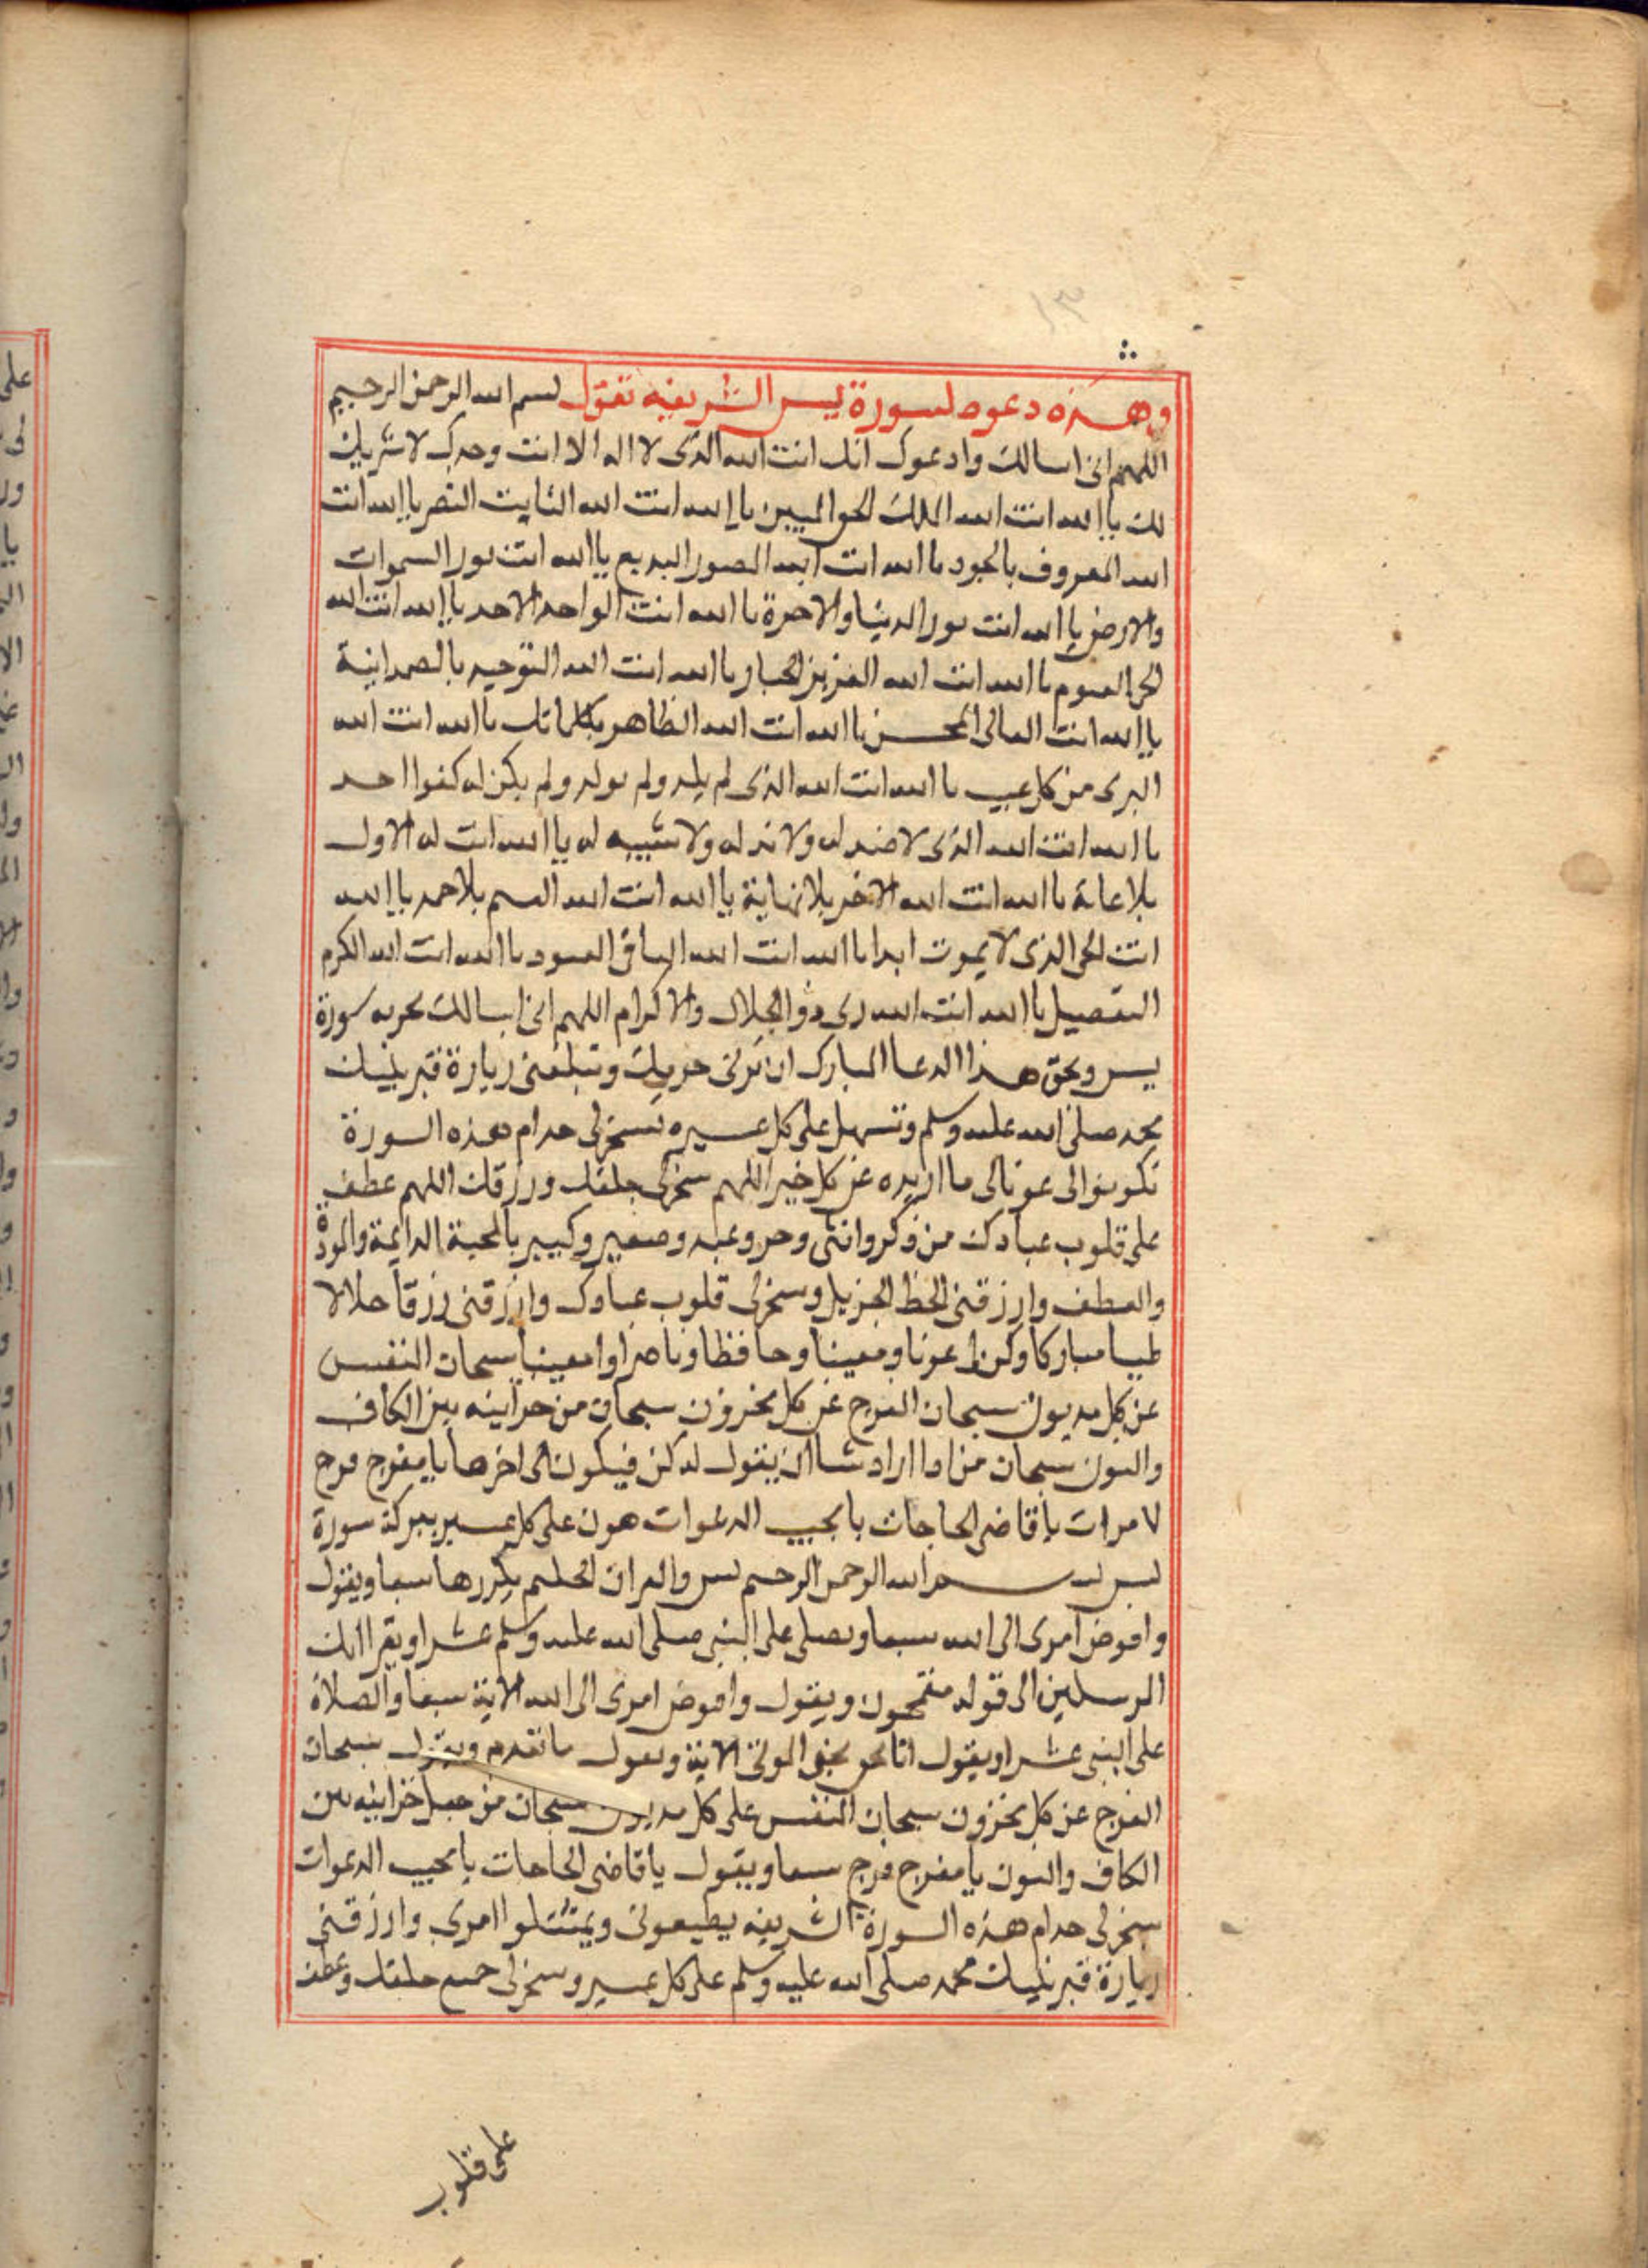 وهذه دعوه لسورة يس الشريفه تقول بسم الله الرحمن الرحيم
اللهم انى اسالك وادعوك انك انت الله الذى لا اله الا انت وحدك لا شريك
لك يا الله انت الله الملك الحق المبين يا الله انت الله الثابت النصر يا الله انت
الله المعروف بالجود يا الله انت الله المصور البديع يا الله انت نور السموات
والارض يا الله انت نور الدنيا والاخرة يا الله انت الواحد الاحد يا الله انت الله
الحى القيوم يا الله انت الله العزيز الجبار يا الله انت الله التوحيد بالصمدانية
يا الله انت العالى المحسن يا الله انت الله الظاهر بكلماتك يا الله انت الله
البرى من كل عيب يا الله انت الله الذى لم يلد ولم يولد ولم يكن له كفوا احد
يا الله انت الله الذى لا ضد له ولا ند له ولا شبيه له يا الله انت له الاول
بلا غاية يا الله انت الله الاخر بلا نهاية يا الله انت الله بلا حد يا الله
انت الحى الذى لا يموت ابدا يا الله انت الله الباقى المعبود يا الله انت الله الكرم
التفصيل يا الله انت الله ذو الجلال والاكرام اللهم انى اسالك بحرمه سورة
يس وبحق هذا الدعا المبارك ان وتبلغنى زيارة قبر نبيك
محمد صلى الله عليه وسلم وتسهل على كل عسيره تسخر لى خدام هذه السورة
تكونوا لى عونا لى ما اريده عن كل خير اللهم سخر لى خلقك ورزقك اللهم عطف
على قلوب عبادك من ذكر وانثى وحر وعبد وصغير وكبير بالمحبة الدايمة والمودة
والعطف وارزقنى الحظ الجزيل وسخر لى قلوب عبادك وارزقنى رزقا حلالا
طيبا مباركا وكن لى عونا ومعينا وحافظا وناصرا وامعينا سبحان النفس
عن كل مديون سبحان الفرج عن كل محزون سبحان من خزاينه بين الكاف
والنون سبحان من اذا اراد شيا ان يقول له كن فيكون الى اخرها يا مفرج فرج
٧ مرات يا قاضى الحاجات يا مجيب الدعوات هون على كل عسير ببركة سورة
يس بسم الله الرحمن الرحيم يس والقران الحكيم يكررها سبعا ويقول
وافوض امرى الى الله سبعا ويصلى على النبى صلى الله عليه وسلم عشرا ويقرا انك
المرسلين الى قوله مقمحون ويقول وافوض امرى الى الله الاية سبعا والصلاة
على النبى عشرا ويقول انا نحن نحيى الموتى الاية ويقول ما تقدم ويقول سبحان
الفرج عن كل محزون سبحان النفس على كل مديون سبحان من جعل خزاينه بين
الكاف والنون يا مفرج فرج سبعا ويقول يا قاضى الحاجات يا مجيب الدعوات
سخر لى خدام هذه السورة الشريفه يطيعونى ويمتثلوا امرى وارزقنى
زيارة قبر نبيك محمد صلى الله عليه وسلم على كل عسير وسخر لى جميع خلقك وعطف
على قلوب